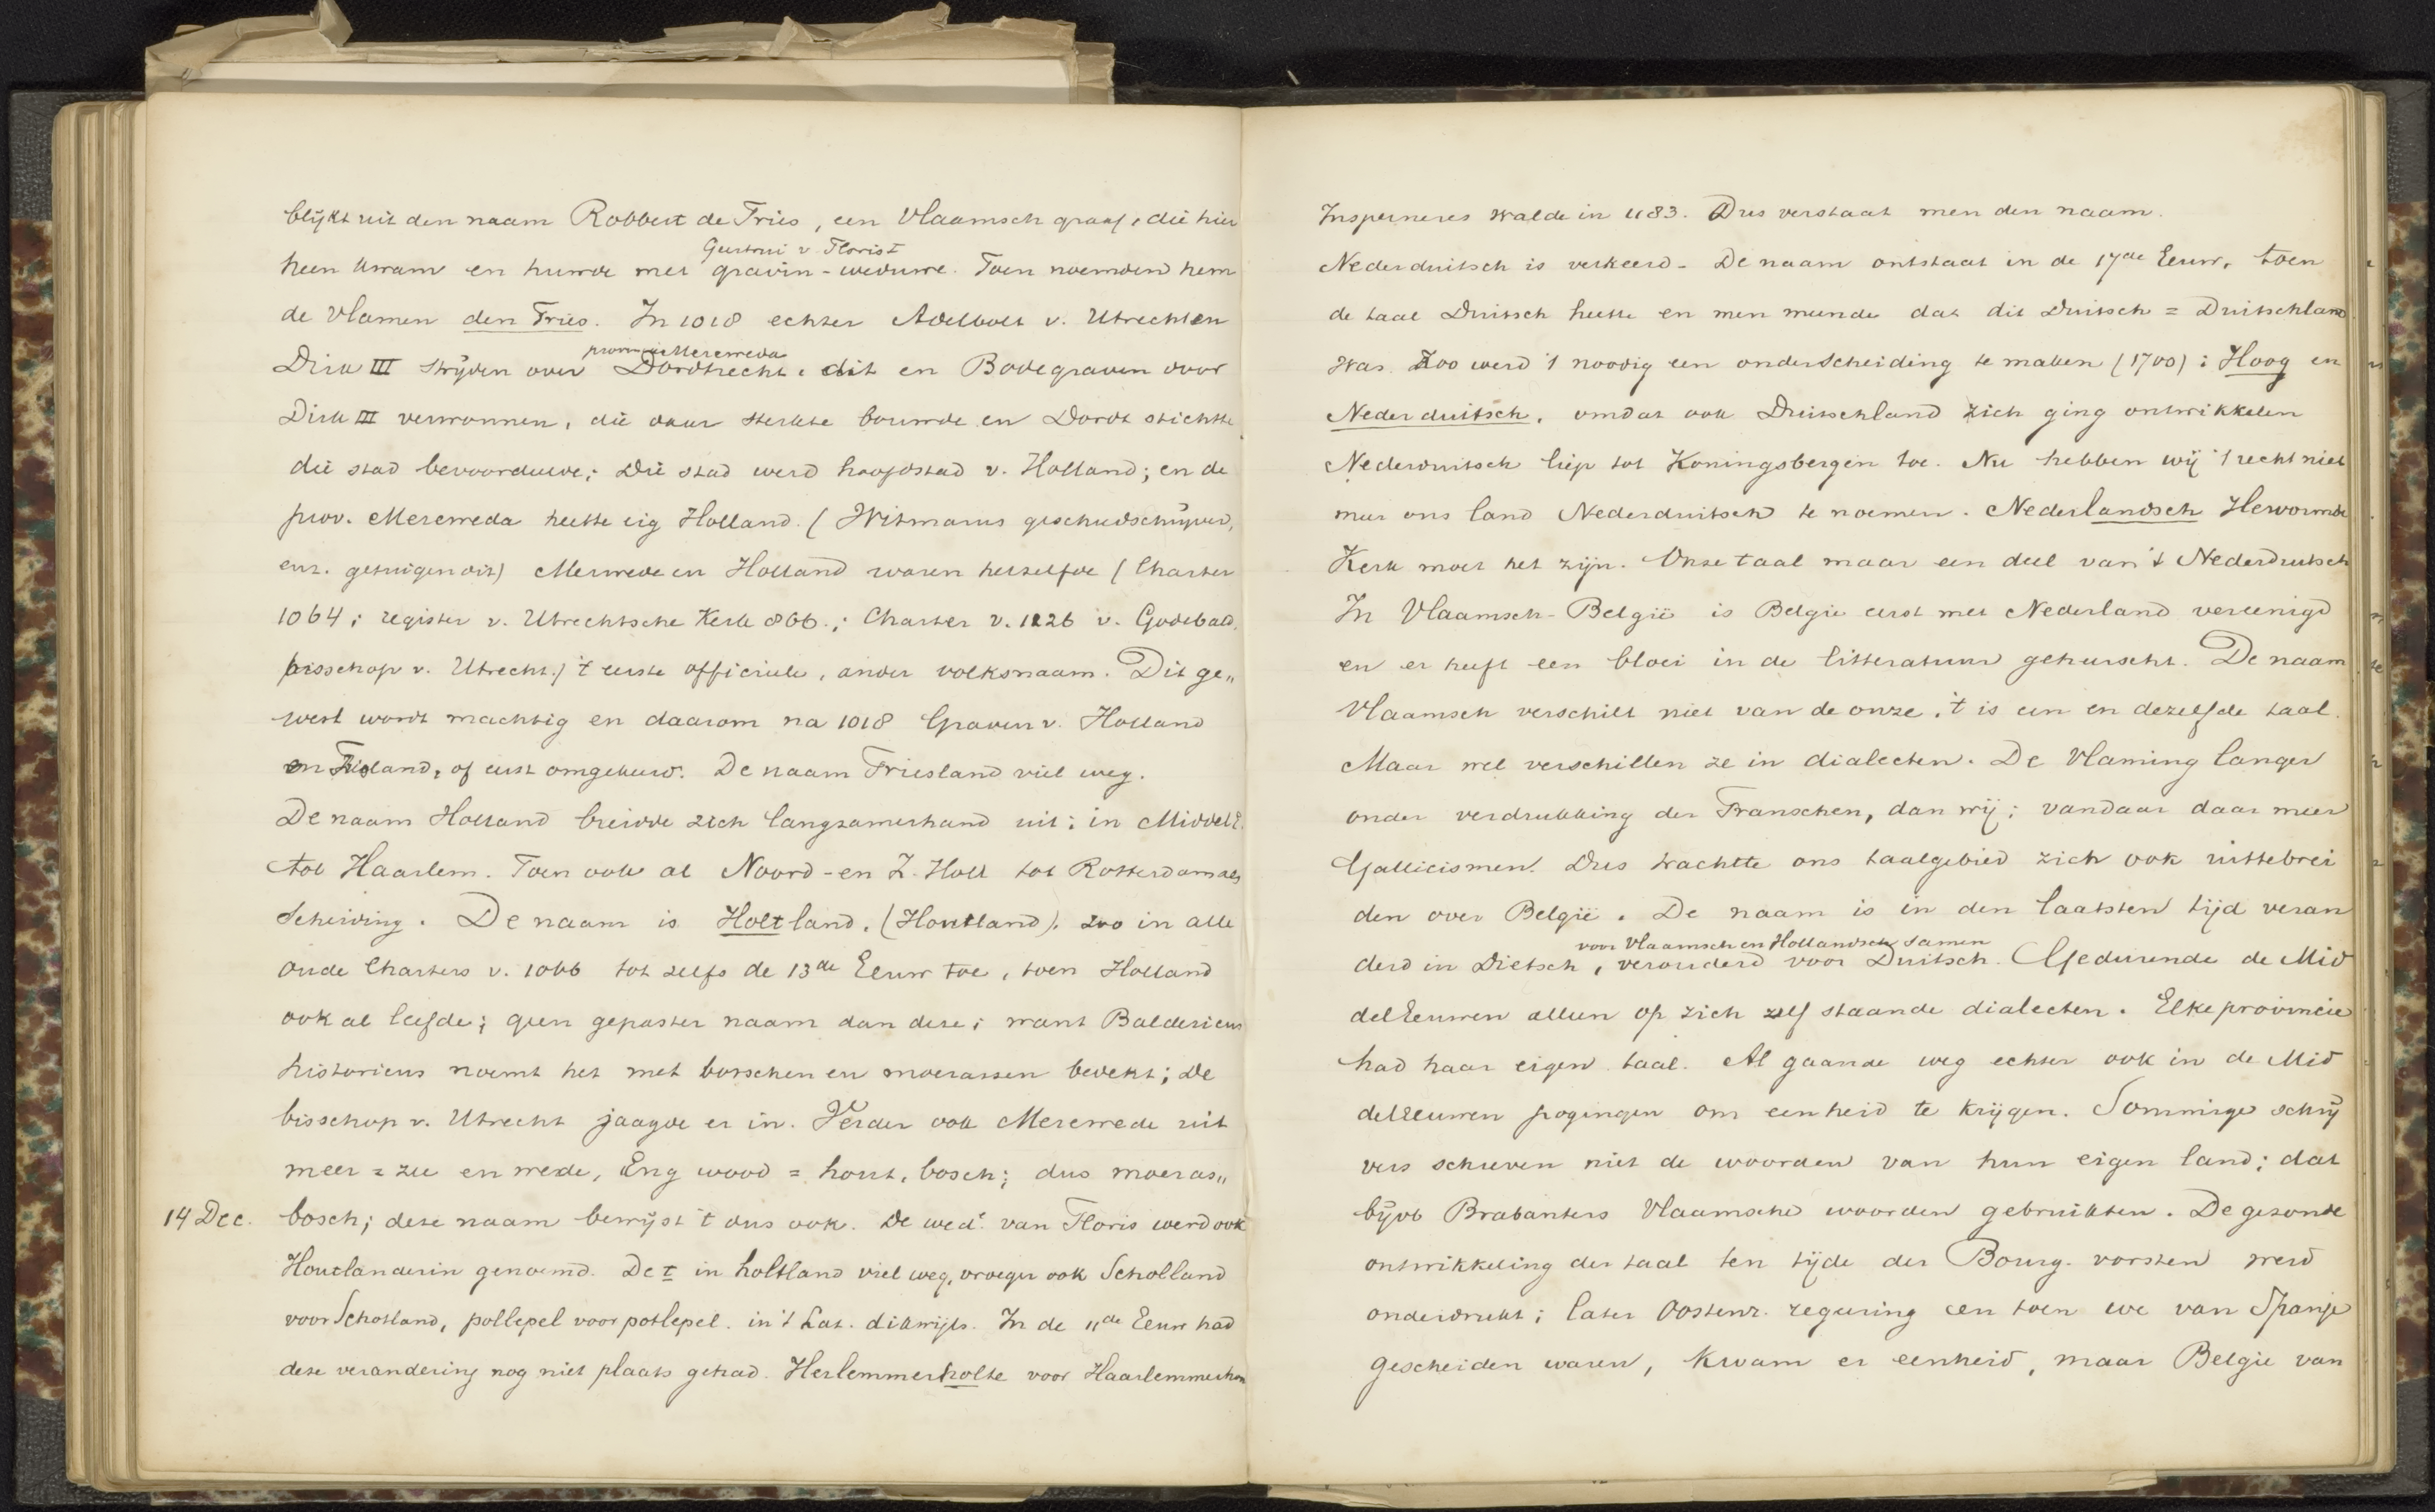 blijkt uit den naam Robbert de Fries, een Vlaamsch graaf, die hier
Geertrui v Floris I
heen kwam en huwde met gravin-weduwe. Toen noemden hem
de Vlamen den Fries. In 1018 echter Adelbolt v. Utrecht en
provincie Merewede
Dirk III strijden over Dordrecht, dit en Bodegraven door
Dirk III verwonnen, die daar sterkte bouwde en Dordt stichtte
die stad bevoordeelde; Die stad werd hoofdstad v. Holland; en de
prov. Merewede heette eig Holland. (Witmarus geschiedschrijver,
enz. getuigen dit) Merwede en Holland waren hetzelfde (Charter
1064; register v. Utrechtsche Kerk 866.; Charter v. 1126 v. Godebald
bisschop v. Utrecht.) 't eerste officieele, ander volksnaam. Dit ge„
west wordt machtig en daarom na 1018 Graven v. Holland
en Friesland, of eerst omgekeerd. De naam Friesland viel weg.
De naam Holland breidde zich langzamerhand uit; in Middel E.
tot Haarlem. Toen ook al Noord-en Z. Holl tot Rotterdam als
scheiding. De naam is Holtland, (Houtland), zoo in alle
oude Charters v. 1066 tot zelfs de 13de Eeuw toe, toen Holland
ook al leefde; geen gepaster naam dan deze; want Baldericus
historicus noemt het met bosschen en moerassen bedekt; De
bisschop v. Utrecht jaagde er in. Verder ook Merewede uit
meer = zee en wede, Eng wood = hout, bosch; dus moeras„
14 Dec. bosch; deze naam bewijst 't ons ook. De wede. van Floris werd ook
Houtlanderin genoemd. De t in holtland viel weg, vroeger ook Scholland
voor Schotland, pollepel voor potlepel. in 't Lat. dikwijls. In de 11de Eeuw had
deze verandering nog niet plaats gehad. Herlemmerholte voor Haarlemmerhou
Insperneres walde in 1183. Dus verstaat men den naam.
Nederduitsch is verkeerd. De naam ontstaat in de 17de Eeuw, toen
de taal Duitsch heette en men meende dat dit Duitsch = Duitschland
was. Zoo werd 't noodig een onderscheiding te maken (1700): Hoog en
Nederduitsch, omdat ook Duitschland zich ging ontwikkelen
Nederduitsch liep tot Koningsbergen toe. Nu hebben wij 't recht niet
meer ons land Nederduitsch te noemen. Nederlandsch Hervormde
Kerk moet het zijn. Onze taal maar een deel van 't Nederduitsch
In Vlaamsch-België is Belgie eerst met Nederland vereenigd
en er heeft een bloei in de litteratuur geheerscht. De naam
Vlaamsch verschilt niet van de onze, 't is een en dezelfde taal.
Maar wel verschillen ze in dialecten. De Vlaming langer
onder verdrukking der Franschen, dan wij; vandaar daar meer
Gallicismen. Dus trachtte ons taalgebied zich ook uittebrei
den over België. De naam is in den laatsten tijd veran
voor Vlaamsch en Hollandsch samen
derd in Dietsch, verouderd voor Duitsch. Gedurende de Mid
delEeuwen alleen op zich zelf staande dialecten. Elke provincie
had haar eigen taal. Al gaande weg echter ook in de Mid
delEeuwen pogingen om eenheid te krijgen. Sommige schrij
vers schreven niet de woorden van hun eigen land; dat
bijvb Brabanters Vlaamsche woorden gebruikten. De gezonde
ontwikkeling der taal ten tijde der Bourg. vorsten werd
onderdrukt; later Oostenr. regeering en toen we van Spanje
gescheiden waren, kwam er eenheid, maar Belgie van